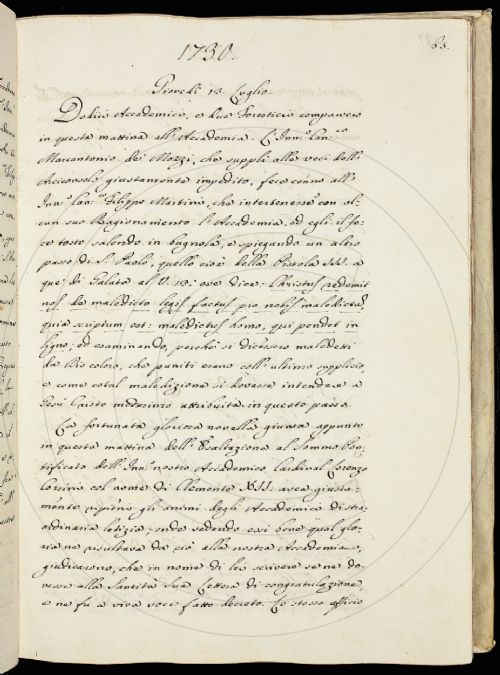 1730.
65.
Giovedì 13 Luglio.
Dodici Accademici, e due Forestieri comparvero
in questa mattina all' Accademia. L' Inn.º Can.co
Marcantonio de' Mozzi, che supplì alle veci dell'
Arciconsolo giustamente impedito, fece cenno all'
Inn.º Can.co Filippo Martini, che intertenesse con al-
cun suo Ragionamento l' Accademia, ed egli il fe-
ce tosto salendo in bugnola, e spiegando un altro
passo di S. Paolo, quello cioè della Pistola III. a
que' di Galata al V. 13: ove dice: Christus redemit
nos de maledicto legis factus pro nobis maledictũ,
quia scriptum est: maledictus homo, qui pendet in
ligno; ed esaminando, perchè si dicessero maledetti
da Dio coloro, che puniti erano coll' ultimo supplicio,
e come cotal maledizione si dovesse intendere a
Gesù Cristo medesimo attribuita in questo passo.
La fortunata gloriosa novella giunta appunto
in questa mattina dell' Esaltazione al Sommo Pon-
tificato dell' Inn. nostro Accademico Cardinal Lorenzo
Corsini col nome di Clemente XII. avea giusta-
mente ripieni gli animi degli Accademici di stra-
ordinaria letizia; onde vedendo essi bene qual glo-
ria ne risultava da ciò alla nostra Accademia,
giudicarono, che in nome di lei scrivere se ne do-
vesse alla Santità Sua Lettera di congratulazione,
e ne fu a viva voce fatto decreto. Lo stesso officio